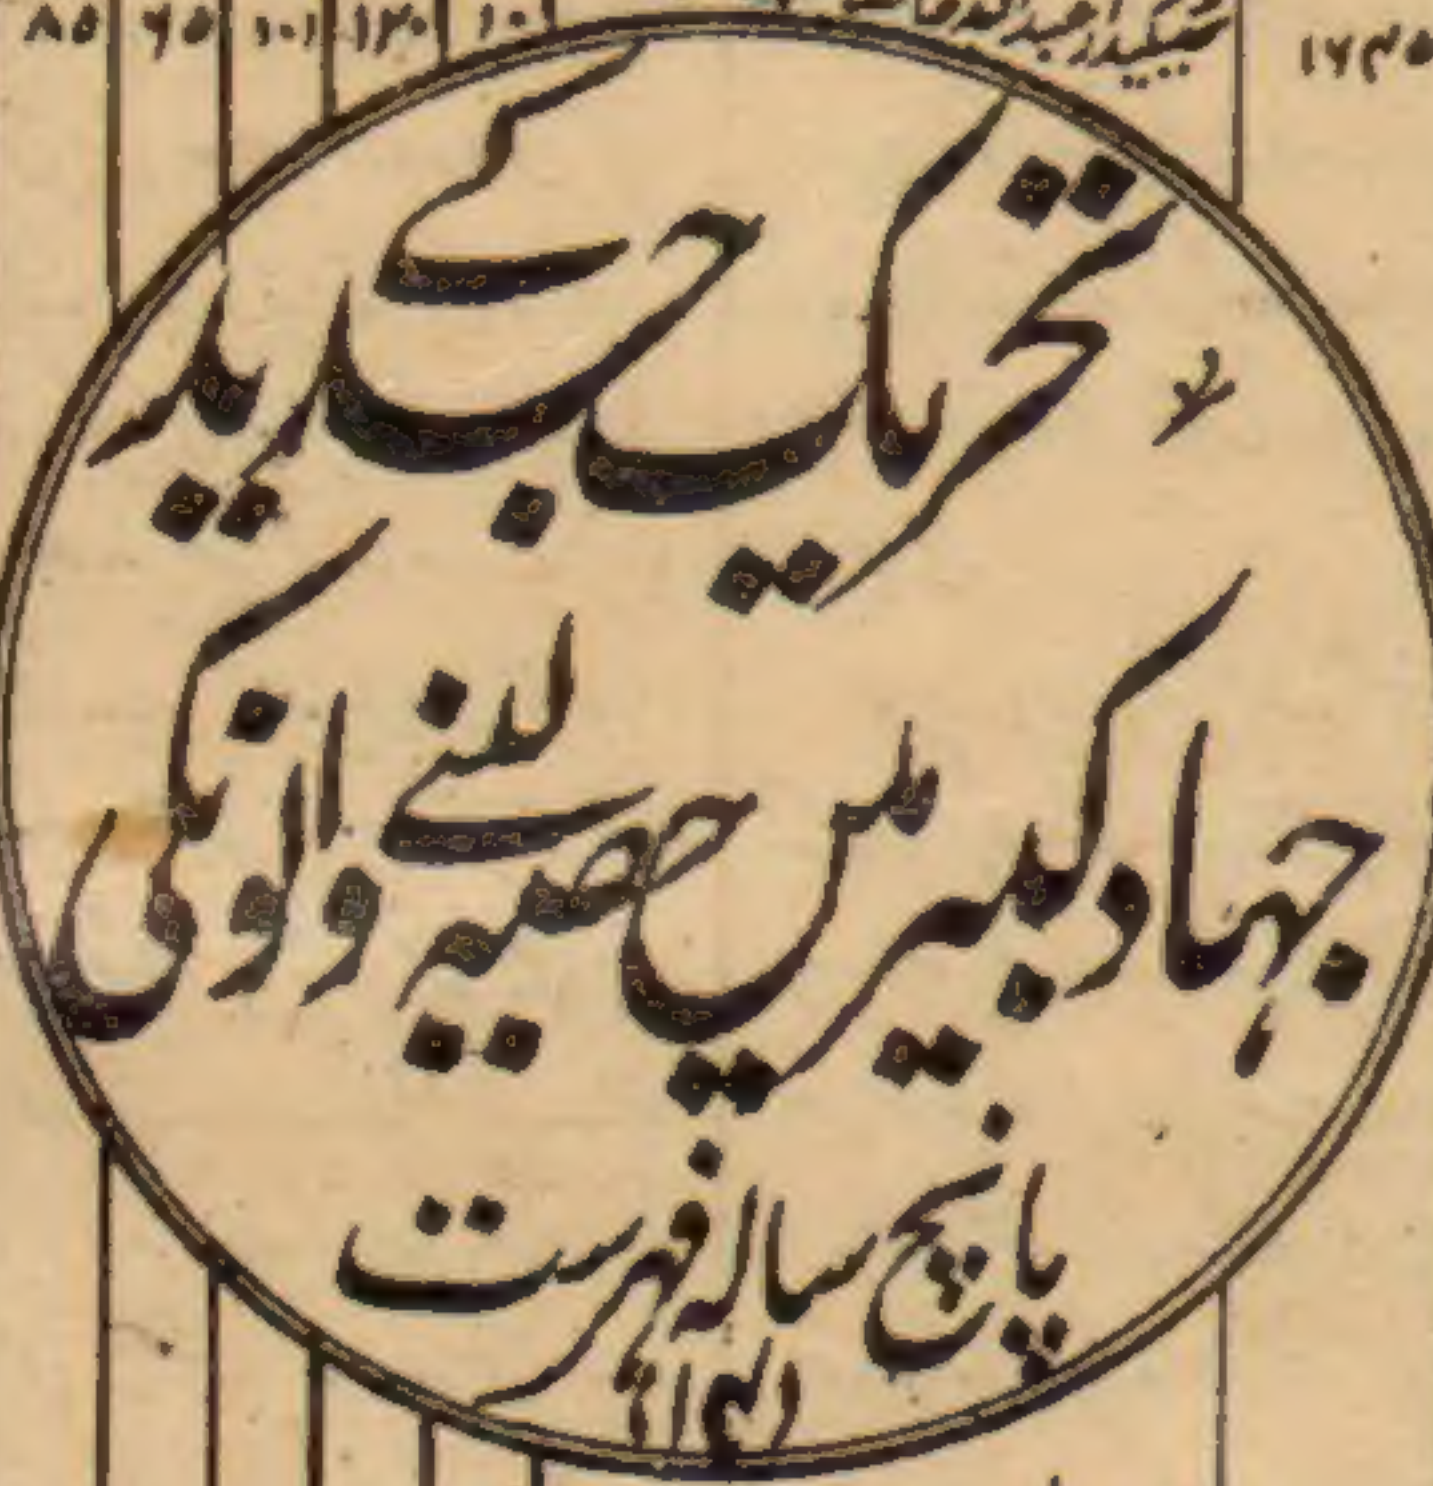 ۸۵ ۶۵ ۱۰۱ ۱۲۰ ۱۰
۱۶۴۵
تحریک جدید کے
جہاد کبیر میں حصہ لینے والونکی
پانچ سالہ فہرست